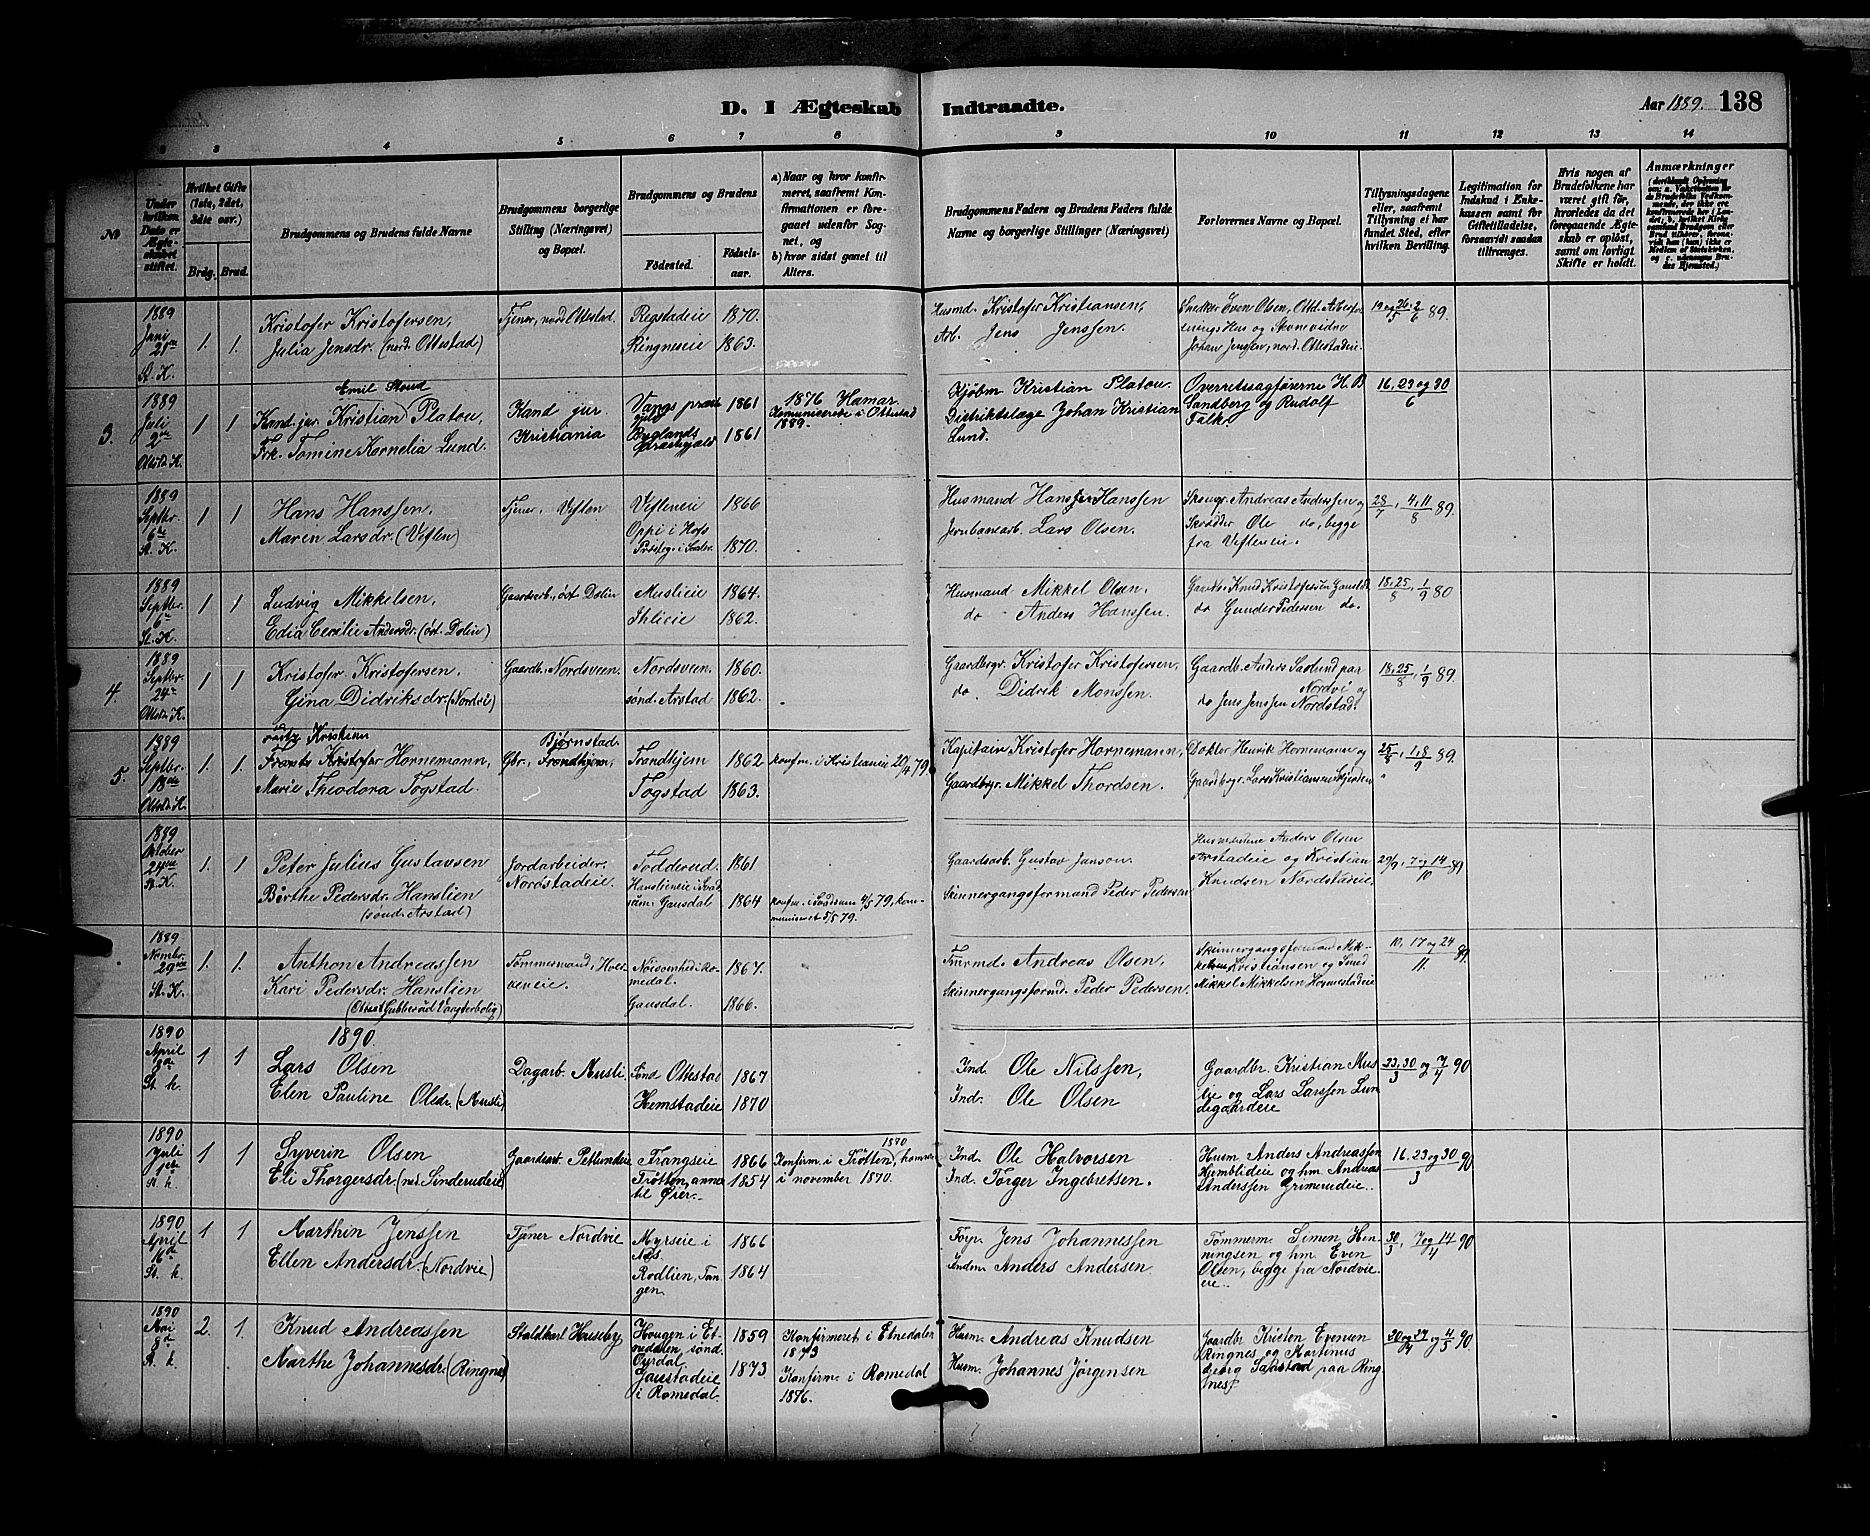 D. I Ægteskab Indtraadte.
Aar 1889. 138
2 3 4 5 6 7 8 9 10 11 12 13 14
№
Under hvilken Dato er Ægteskabet stiftet.
Hvilket Gifte (1ste, 2det, 3die osv.)
Brdg. Brud.
Brudgommens og Brudens fulde Navne
Brudgommens borgerlige Stilling (Næringsvei) og Bopæl.
Brudgommens og Brudens
Födested. Födselsaar.
a) Naar og hvor konfirmeret, saafremt Konfirmationen er foregaaet udenfor Sognet, og
b) hvor sidst gaaet til Alters.
Brudgommens Faders og Brudens Faders fulde Navne og borgerlige Stillinger (Næringsvei)
Forlovernes Navne og Bopæl.
Tillysningsdagene eller, saafremt Tillysning ei har fundet Sted, efter hvilken Bevilling.
Legitimation for Indskud i Enkekassen samt for Giftetilladelse, forsaavidt saadan tiltrænges.
Hvis nogen af Brudefolkene har været gift för, hvorledes da det foregaaende Ægteskab er oplöst, samt om lovligt Skifte er holdt.
Anmærkninger
1889 Juni 21de St. K.
1. 1.
Kristofer Kristofersen,
Julia Jensdr. (nord. Ottestad)
Tjener, nord. Ottestad.
Regstadeie 1870.
Ringneseie 1863.
Husmd. Kristofer Kristiansen,
Arb. Jens Jenssen.
Snekker Even Olsen, Ottd. Arbeidsfor
Johan Jenssen, nord. Ottestadeie.
19 og 26/5, 2/6 89.
3.
1889 Juli 2den Ottest. K.
1 1
Emil Stoud
Kand. jur. Kristian Platou,
Frk. Tomine Kornelia Lund.
Kand jur.
Kristiania
Vangs præstegjeld 1861
Byglands Præstegjæld 1861
1876 Hamar
Komunicerede i Ottestad
1889.
Kjøbm Kristian Platou.
Distriktslæge Johan Kristian
Lund.
Overretssagførerne H. B
Sandberg og Rudolf
Falk.
16, 23 og 30/6
1889 Septbr. 6te St. K.
1 1
Hans Hanssen,
Maren Larsdr. (Viflen)
Tjener, Viflen
Vifleneie 1866
Oppi i Hofs
1870.
Husmand Hans Hanssen
Jernbanearb. Lars Olsen.
Skomgr. Andreas Anderssen og
Skrædder Ole do, begge
fra Vifleneie.
28/7, 4, 11/8 89.
1889 Septbr. 6te St. K.
1 1
Ludvig Mikkelsen,
Edia Cecilie Andersdr. (öst. Dölin)
Gaardsarb., öst Dölin
Muslieie 1864.
Ihlieie 1862.
Husmand Mikkel Olsen.
do Anders Hanssen.
do Gunder Pedersen do.
18, 25/8, 1/9 89
4.
1889 Septbr. 24de Ottest. K.
1 1
Kristofer Kristofersen.
Gina Didriksdr. (Nordvi)
Gaardb. Nordsveen.
Nordsveen. 1860.
sönd. Arstad 1862.
Gaardbrgr. Kristofer Kristofersen,
do. Didrik Monssen.
Gaardb. Anders Saxlund paa
Nordvi og
do Jens Jenssen Nordstad.
18, 25/8, 1/9 89.
5.
1889 Septbr. 18de Ottest. K.
1. 1.
Frants Kristofer Hornemann,
Marie Theodora Togstad.
Björnstad
Gbr., Trondhjem,
Trondhjem 1862
Togstad 1863.
konfrm. i Kristiania 20/4 79.
Kapitain Kristofer Hornemann,
Gaardbrgr. Mikkel Thordsen.
Dokter Henrik Hornemann og
Gaardbrgr. Lars Kristiansen
25/8, 1, 8/9 89.
1889 Oktober 24de St. K.
1. 1
Peter Julius Gustavsen
Berthe Pedersdr. Hanslien
(sönd. Arstad)
Jordarbeider.
Nordstadeie.
Todderud. 1861
Gausdal 1864
Gaardsarb. Gustav Janson.
Skinnergangsformand Peder Pedersen
Husmændene Anders Olsen
Arstadeie og Kristian
Knudsen Nordstadeie.
29/9, 7 og 14/10 89
1889 Novmbr. 29de St. K.
1. 1.
Anthon Andreassen
Kari Pedersdr. Hanslien
Tømmermand,
Romedal. 1867.
Gausdal. 1866.
Andreas Olsen,
Skinnergangsformd. Peder Pedersen.
Kristiansen og Smed
Mikkel Mikkelsen
10, 17 og 24/11 89
1890.
1890 April 8de St. k.
1 1
Lars Olsen
Elen Pauline Olsdr. (Musli)
Dagarb. Musli
Sönd Ottestad 1867
Hemstadeie 1870
Ind. Ole Nilssen,
Ind. Ole Olsen
Gaardbr. Kristian Mus
lie og Lars Larssen Lun
degaardeie
23, 30/3 og 7/4 90
1890 Juli 1ste St. k.
1 1
Syverin Olsen
Eli Thorgersdr.
Gaardsarb. Petlundeie
Frangseie 1866
Trötten, annex
til Öier. 1854
1890
Konfirm. i Trötten,
i november 1870.
Ind. Ole Halvorsen
Ind. Torger Ingebretsen.
Husm Anders Andreassen
Hemblideie og hm Andreas
Anderssen Grimerudeie.
16, 23 og 30/3 90
1890 April 16de St. k.
1 1
Marthin Jenssen
Ellen Andersdr. (Nordvie)
Tjener Nordvie
Myrseie i
Næs 1866
Rodlien, Tan
gen. 1864
Forp. Jens Johannessen
Anders Andersen
Tömmerm. Simen Hen
ningsen og hm. Even
Olsen, begge fra Nordvie
eie.
30/3, 7 og 14/4 90
1890 Mai 8de St. k.
2. 1.
Knud Andreassen
Marthe Johannesdr. (Ringnes)
Staldkarl Huseby
Haugen i Et
nedalen sönd.
1859
Gaustadeie
i Romedal. 1873
Konfirmeret i Etnedalen
1873
Konfirm. i Romedal
1876.
Husm. Andreas Knudsen
Husm. Johannes Jørgensen
Gaardbr Kristen Evensen
Ringnes og Martinus
Georg Sælstad paa Ring
nes
20 og 27/4 og 4/5 90